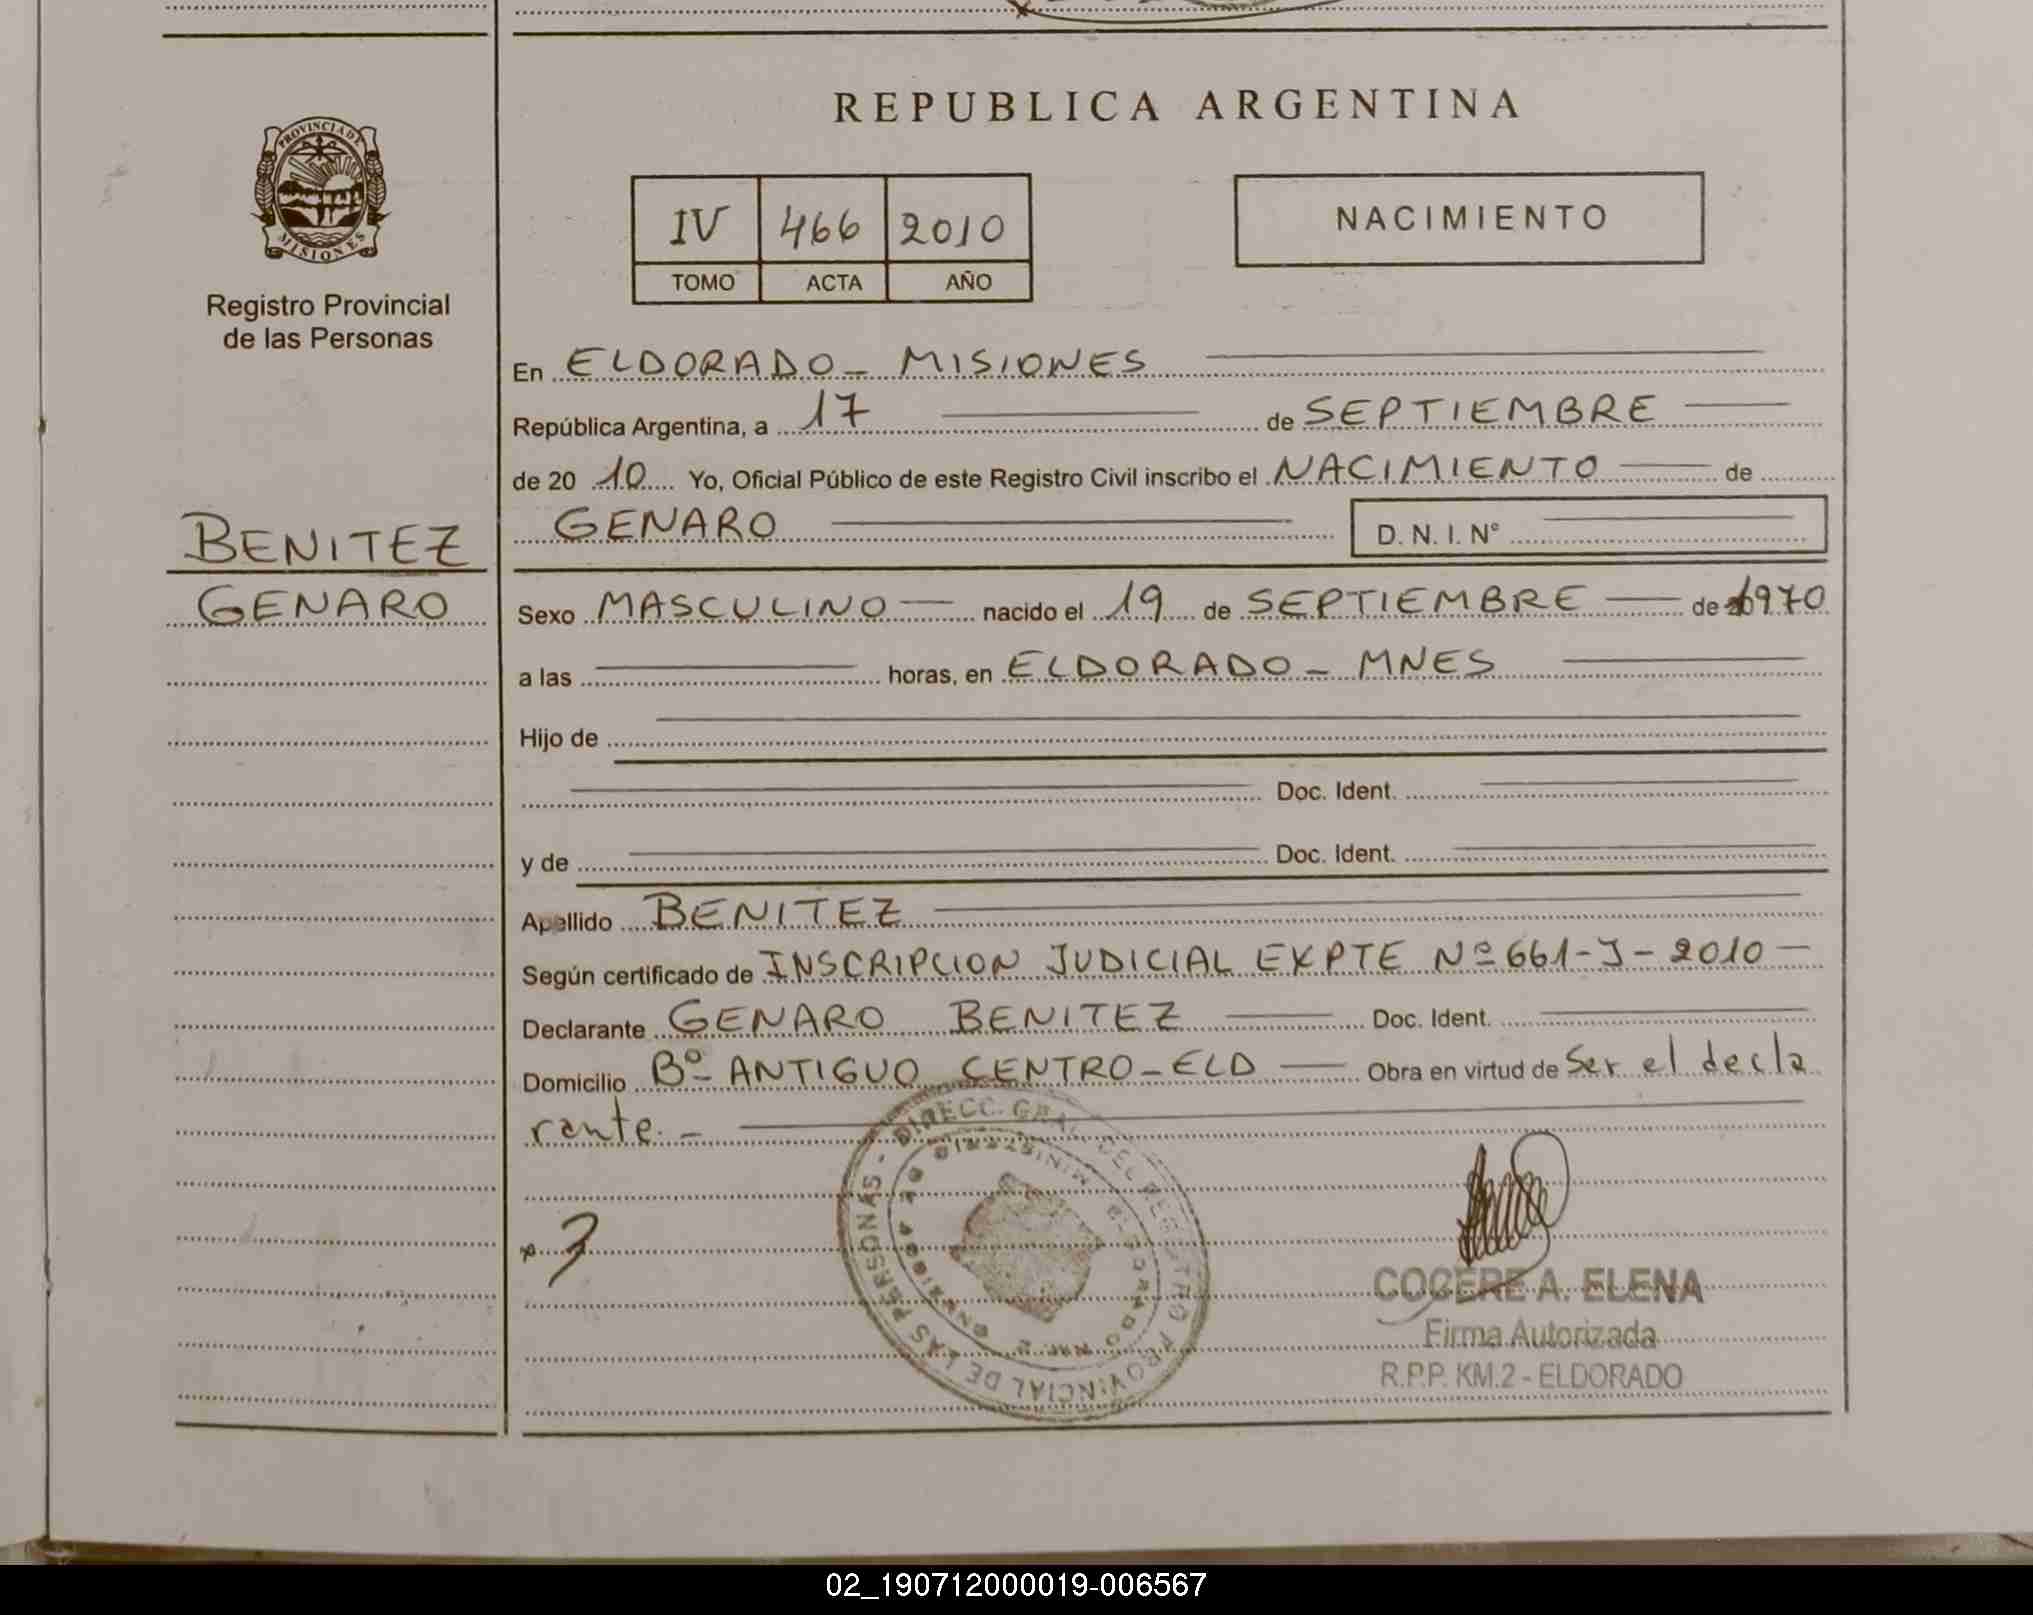 REPUBLICA ARGENTINA
PROVINCIA DE
MISIONES
Registro Provincial
de las Personas
IV 466 2010
TOMO ACTA AÑO
NACIMIENTO
En ELDORADO - MISIONES
República Argentina, a 17 de SEPTIEMBRE
de 20 10 Yo, Oficial Público de este Registro Civil inscribo el NACIMIENTO de
GENARO D. N. I. Nº
BENITEZ
GENARO
Sexo MASCULINO nacido el 19 de SEPTIEMBRE de 1970
a las horas, en ELDORADO - MNES
Hijo de
Doc. Ident.
y de Doc. Ident.
Apellido BENITEZ
Según certificado de INSCRIPCION JUDICIAL EXPTE Nº 661-J-2010
Declarante GENARO BENITEZ Doc. Ident.
Domicilio Bº ANTIGUO CENTRO-ELD Obra en virtud de Ser el decla
rante. -
DIRECC. GRAL. DEL REGISTRO PROVINCIAL DE LAS PERSONAS -
COGERE A. ELENA
Firma Autorizada
R.P.P. KM.2 - ELDORADO
02_190712000019-006567